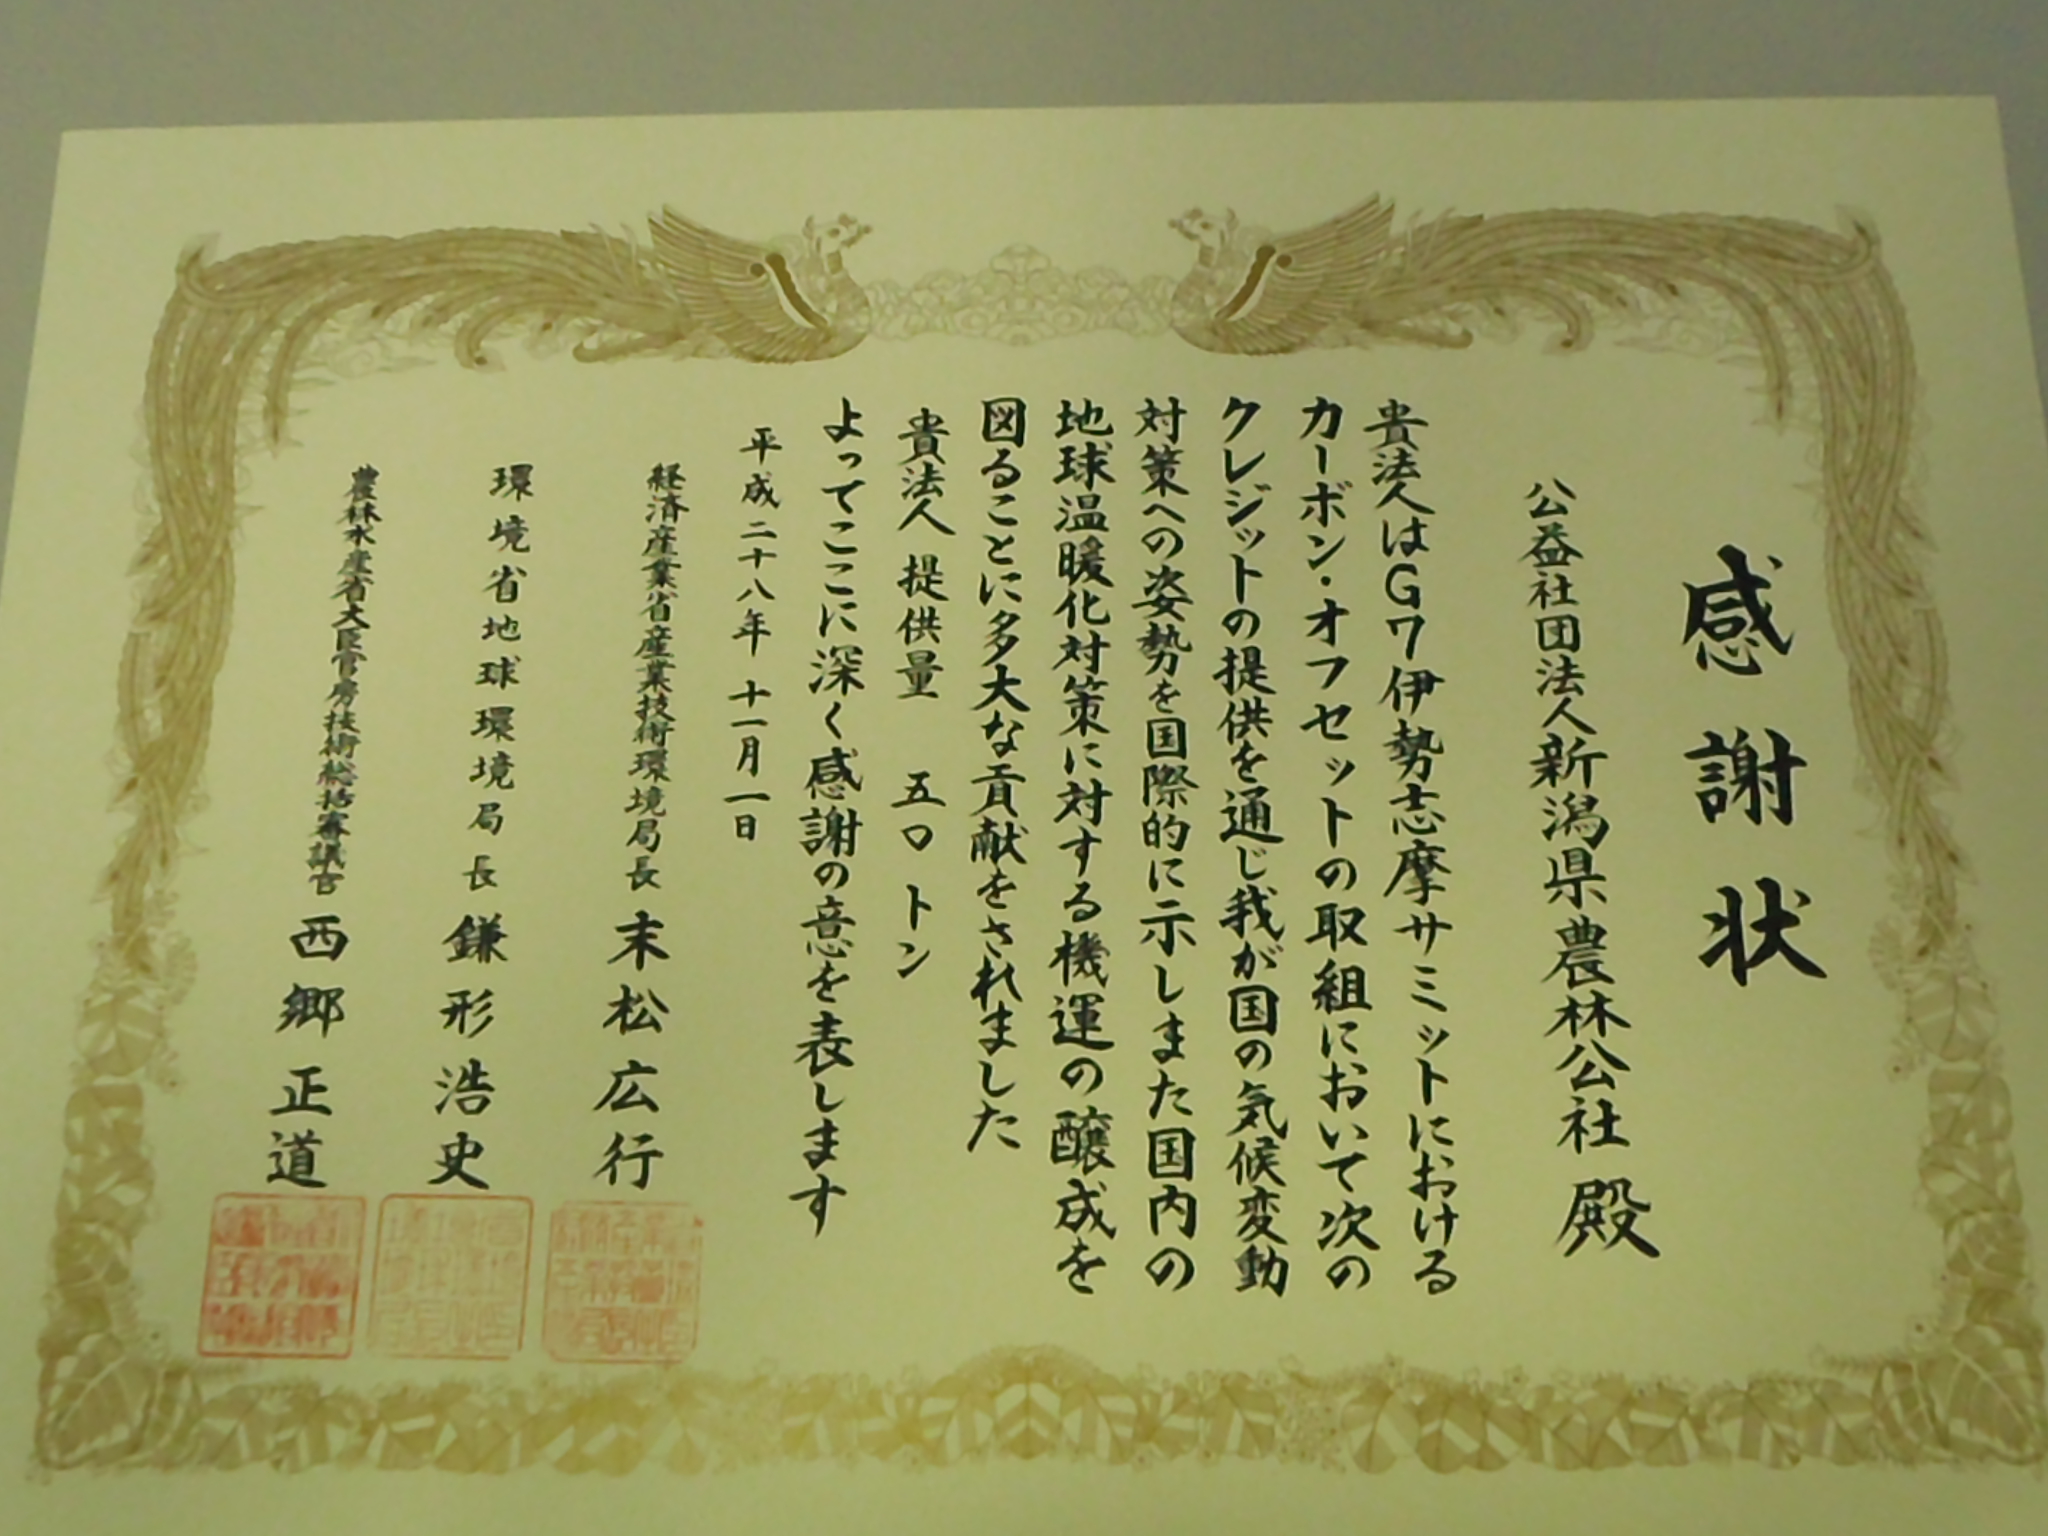 感謝状
公益社団法人新潟県農林公社 殿
貴法人はG7伊勢志摩サミットにおける
カーボン・オフセットの取組において次の
クレジットの提供を通じ我が国の気候変動
対策への姿勢を国際的に示しまた国内の
地球温暖化対策に対する機運の醸成を
図ることに多大な貢献をされました
貴法人 提供量 五〇トン
よってここに深く感謝の意を表します
平成二十八年十一月一日
経済産業省産業技術環境局長 末松広行
環境省地球環境局長 鎌形浩史
農林水産省大臣官房技術総括審議官 西郷正道